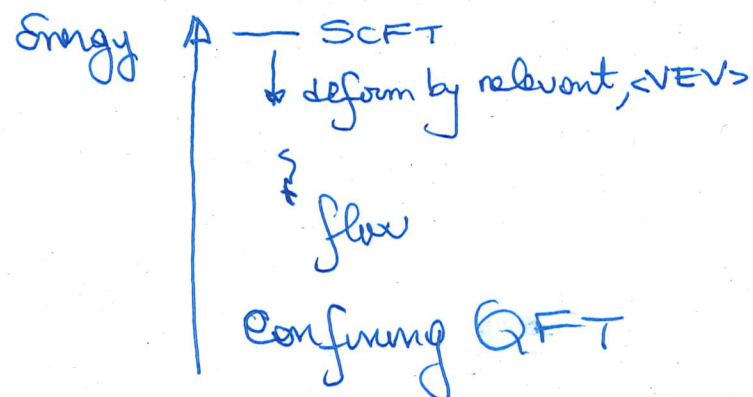 Energy SCFT
deform by relevant, <VEV>
flow
Confining QFT